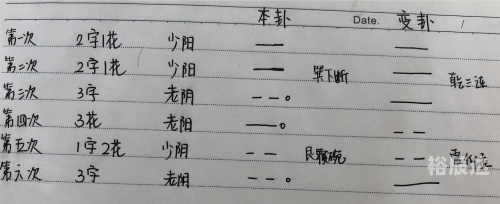 本卦 Date. 变卦
第一次 2字1花 少阳
第二次 2字1花 少阳 巽下断 乾三连
第三次 3字 老阴
第四次 3花 老阳
第五次 1字2花 少阴 艮覆碗
第六次 3字 老阴
裕辰运